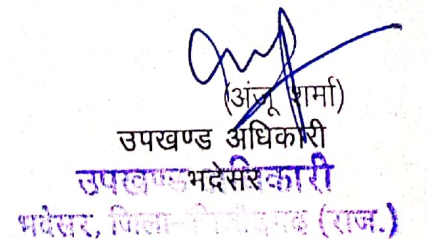 (अंजू शर्मा)
उपखण्ड अधिकारी
भदेसर
उपखण्ड अधिकारी
भदेसर, जिला-चित्तौड़गढ़ (राज.)